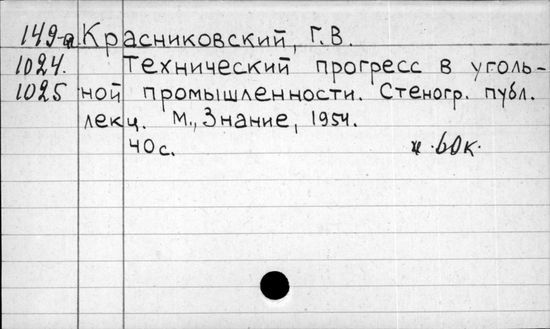 149-а Красниковский, Г.В.
1024. Технический прогресс в уголь-
1025 ной промышленности. Стеногр. публ.
лекц. М., Знание, 1954.
40с. ц. 60к.